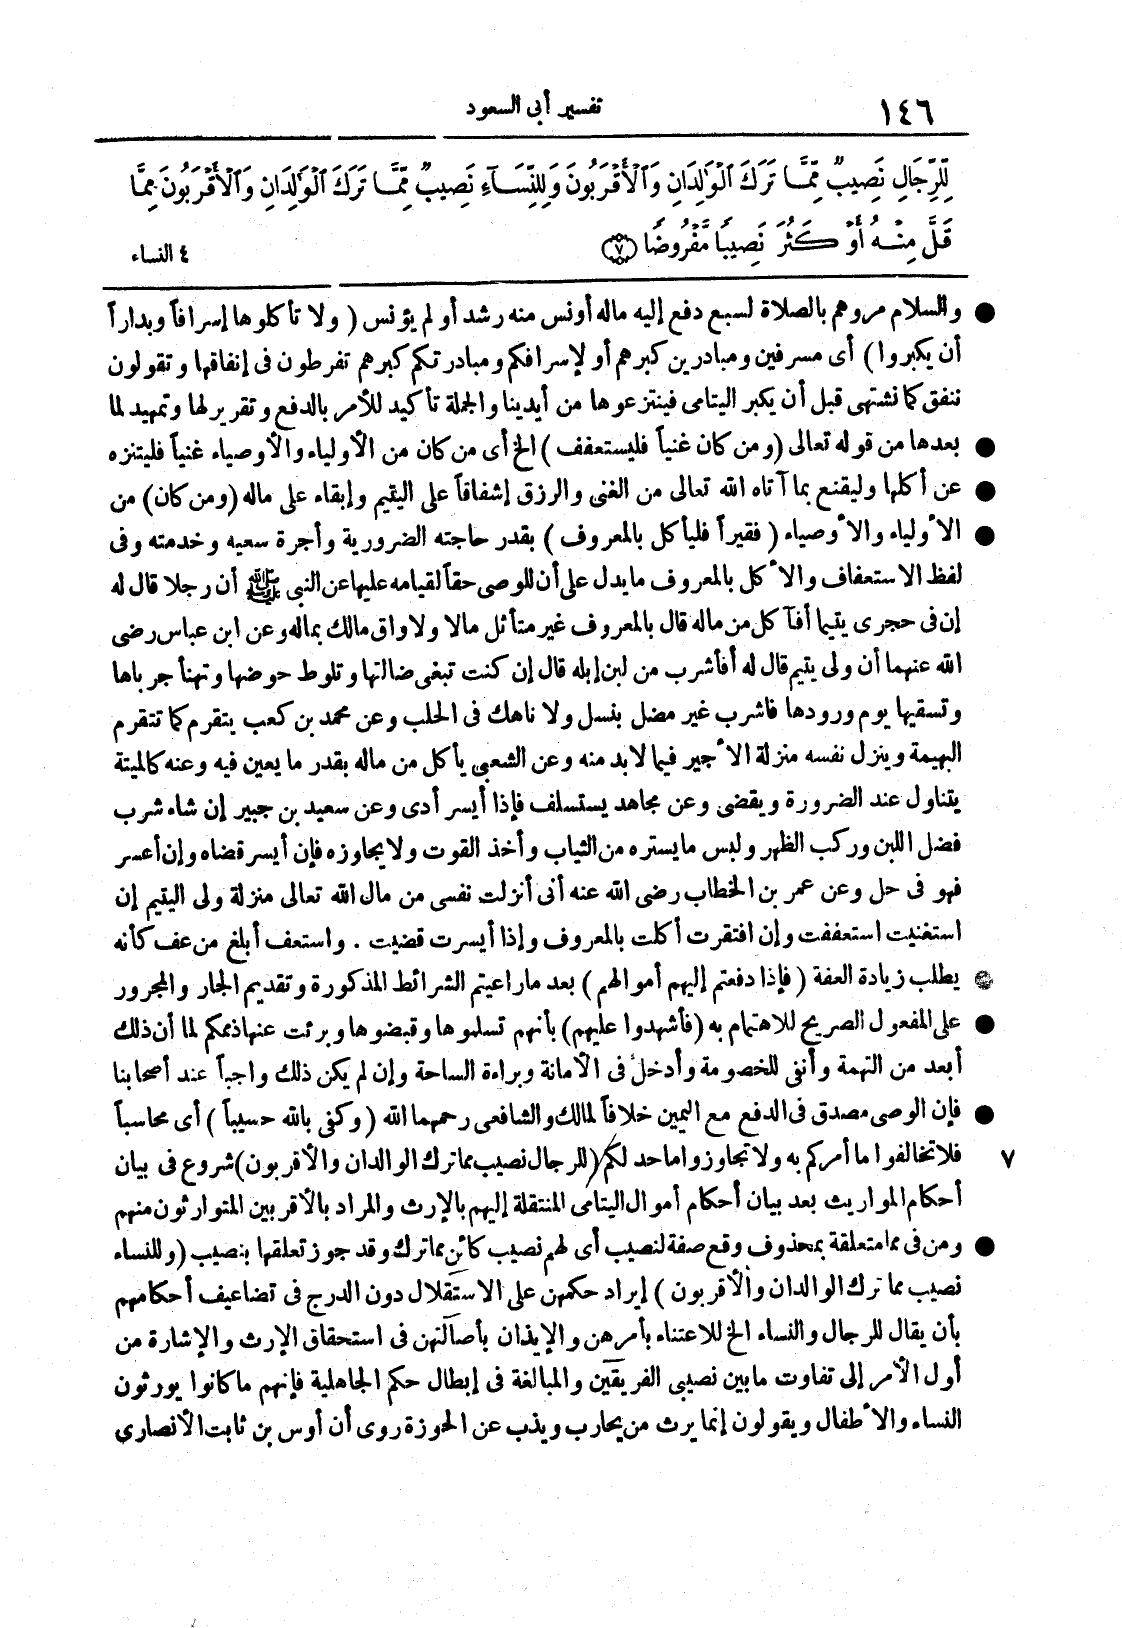 ١٤٦
تفسير أبى السعود
لِّلرِّجَالِ نَصِيبٌ مِّمَّا تَرَكَ الْوَٰلِدَانِ وَالْأَقْرَبُونَ وَلِلنِّسَآءِ نَصِيبٌ مِّمَّا تَرَكَ الْوَٰلِدَانِ وَالْأَقْرَبُونَ مِمَّا
قَلَّ مِنْهُ أَوْ كَثُرَ نَصِيبًا مَّفْرُوضًا (٧)
٤ النساء
والسلام مروهم بالصلاة لسبع دفع إليه ماله أونس منه رشد أو لم يؤنس ( ولا تأكلوها إسرافاً وبداراً
أن يكبروا ) أى مسرفين ومبادرين كبرهم أو لإسرافكم ومبادرتكم كبرهم تفرطون فى إنفاقها وتقولون
ننفق كما نشتهى قبل أن يكبر اليتامى فينتزعوها من أيدينا والجملة تأكيد للأمر بالدفع وتقرير لها وتمهيد لما
بعدها من قوله تعالى (ومن كان غنياً فليستعفف ) الخ أى من كان من الأولياء والأوصياء غنياً فليتنزه
عن أكلها وليقنع بما آتاه الله تعالى من الغنى والرزق إشفاقاً على اليتيم وإبقاء على ماله (ومن كان) من
الأولياء والأوصياء ( فقيراً فليأكل بالمعروف ) بقدر حاجته الضرورية وأجرة سعيه وخدمته وفى
لفظ الاستعفاف والأكل بالمعروف ما يدل على أن للوصى حقاً لقيامه عليها عن النبى ﷺ أن رجلا قال له
إن فى حجرى يتيما أفآكل من ماله قال بالمعروف غير متأثل مالا ولا واق مالك بماله وعن ابن عباس رضى
الله عنهما أن ولى يتيم قال له أفأشرب من لبن إبله قال إن كنت تبغى ضالتها وتلوط حوضها وتهنأ جرباها
وتسقيها يوم ورودها فاشرب غير مضل بنسل ولا ناهك فى الحلب وعن محمد بن كعب يتقرم كما تتقرم
البهيمة وينزل نفسه منزلة الأجير فيما لا بد منه وعن الشعبى يأكل من ماله بقدر ما يعين فيه وعنه كالميتة
يتناول عند الضرورة ويقضى وعن مجاهد يستسلف فإذا أيسر أدى وعن سعيد بن جبير إن شاء شرب
فضل اللبن وركب الظهر ولبس ما يستره من الثياب وأخذ القوت ولا يجاوزه فإن أيسر قضاه وإن أعسر
فهو فى حل وعن عمر بن الخطاب رضى الله عنه أنى أنزلت نفسى من مال الله تعالى منزلة ولى اليتيم إن
استغنيت استعففت وإن افتقرت أكلت بالمعروف وإذا أيسرت قضيت . واستعف أبلغ من عف كأنه
يطلب زيادة العفة ( فإذا دفعتم إليهم أموالهم ) بعد ما راعيتم الشرائط المذكورة وتقديم الجار والمجرور
على المفعول الصريح للاهتمام به (فأشهدوا عليهم) بأنهم تسلموها وقبضوها وبرئت عنها ذممكم لما أن ذلك
أبعد من التهمة وأنفى للخصومة وأدخل فى الأمانة وبراءة الساحة وإن لم يكن ذلك واجباً عند أصحابنا
فإن الوصى مصدق فى الدفع مع اليمين خلافاً لمالك والشافعى رحمهما الله ( وكفى بالله حسيباً ) أى محاسباً
فلا تخالفوا ما أمركم به ولا تجاوزوا ما حد لكم (للرجال نصيب مما ترك الوالدان والأقربون) شروع فى بيان ٧
أحكام المواريث بعد بيان أحكام أموال اليتامى المنتقلة إليهم بالإرث والمراد بالأقربين المتوارثون منهم
ومن فى مما متعلقة بمحذوف وقع صفة لنصيب أى لهم نصيب كائن مما ترك وقد جوز تعلقها بنصيب (وللنساء
نصيب مما ترك الوالدان والأقربون ) إيراد حكمهن على الاستقلال دون الدرج فى تضاعيف أحكامهم
بأن يقال للرجال والنساء الخ للاعتناء بأمرهن والإيذان بأصالتهن فى استحقاق الإرث والإشارة من
أول الأمر إلى تفاوت ما بين نصيبى الفريقين والمبالغة فى إبطال حكم الجاهلية فإنهم ما كانوا يورثون
النساء والأطفال ويقولون إنما يرث من يحارب ويذب عن الحوزة روى أن أوس بن ثابت الأنصارى